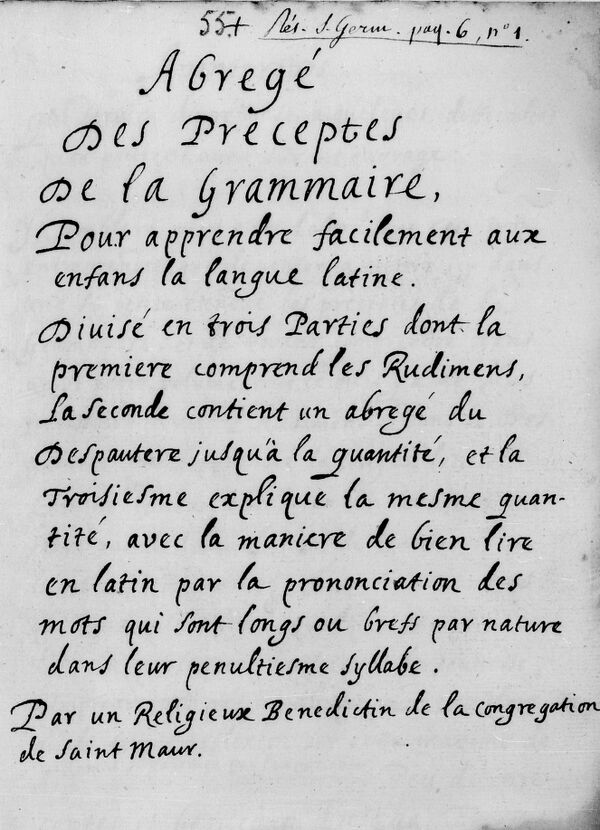 55+ Rés. S. Germ. paq. 6, n° 1.
Abregé
Des Preceptes
De la Grammaire,
Pour apprendre facilement aux
enfans la langue latine.
Diuisé en trois Parties dont la
premiere comprend les Rudimens,
La seconde contient un abregé du
Despautere jusqu'à la quantité, et la
Troisiesme explique la mesme quan-
tité, avec la maniere de bien lire
en latin par la prononciation des
mots qui sont longs ou brefs par nature
dans leur penultiesme syllabe.
Par un Religieux Benedictin de la congregation
de saint Maur.